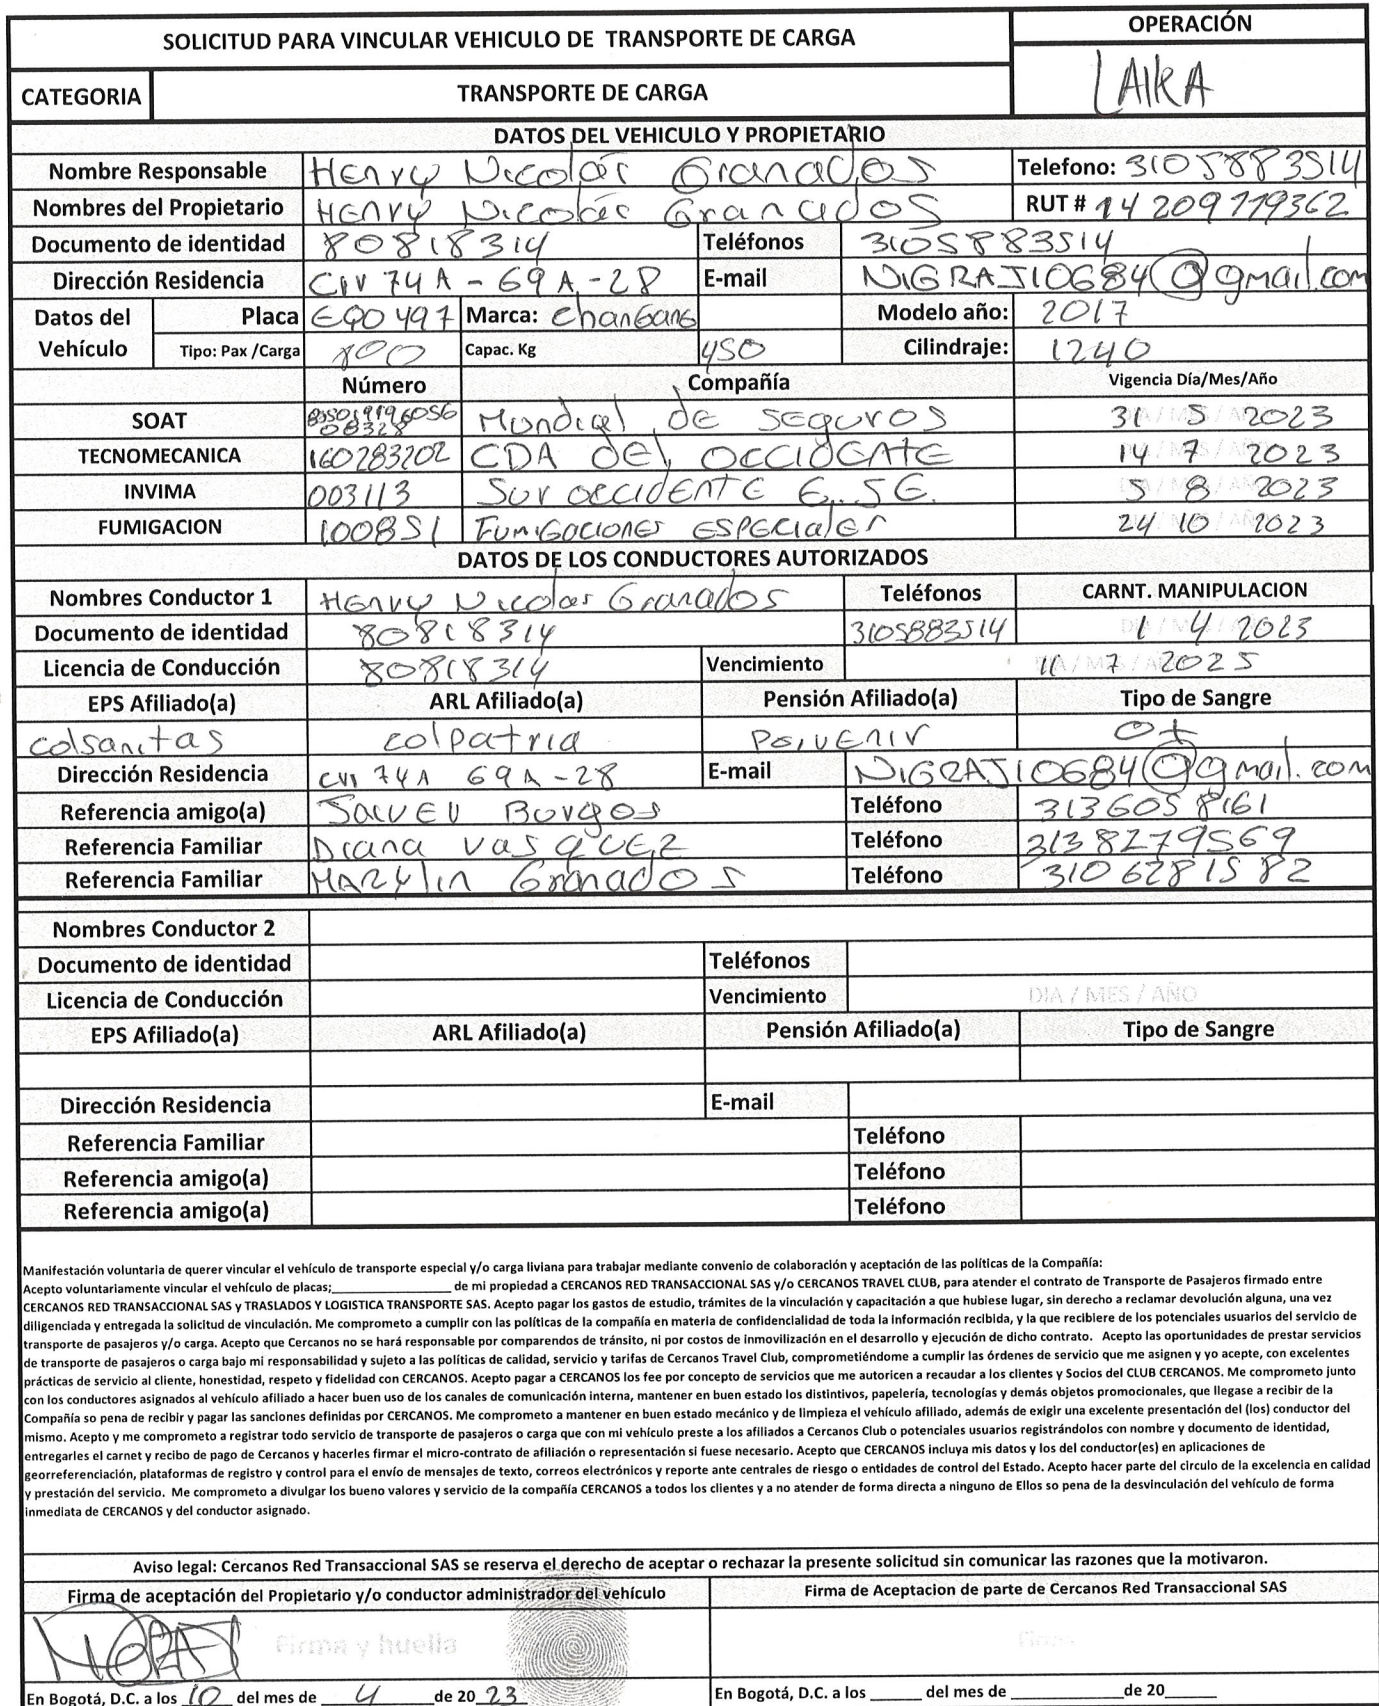 SOLICITUD PARA VINCULAR VEHICULO DE TRANSPORTE DE CARGA
OPERACIÓN
LAIKA
CATEGORIA TRANSPORTE DE CARGA
DATOS DEL VEHICULO Y PROPIETARIO
Nombre Responsable Henry Nicolás Granados Telefono: 3105883514
Nombres del Propietario Henry Nicolás Granados RUT # 14209779362
Documento de identidad 80818314 Teléfonos 3105883514
Dirección Residencia Crv 74A - 69A - 28 E-mail NIGRAJ10684@gmail.com
Datos del Vehículo Placa EQO497 Marca: Changang Modelo año: 2017
Tipo: Pax /Carga 800 Capac. Kg 450 Cilindraje: 1240
Número Compañía Vigencia Día/Mes/Año
SOAT Mundial de seguros 31 5 2023
TECNOMECANICA 160283202 CDA del OCCIDENTE 14 7 2023
INVIMA 003113 Sur occidente E.SE. 5 8 2023
FUMIGACION 100851 Fumigaciones Especiales 24 10 2023
DATOS DE LOS CONDUCTORES AUTORIZADOS
Nombres Conductor 1 Henry Nicolas Granados Teléfonos CARNT. MANIPULACION
Documento de identidad 80818314 3105883514 1 4 2023
Licencia de Conducción 80818314 Vencimiento 11 7 2025
EPS Afiliado(a) ARL Afiliado(a) Pensión Afiliado(a) Tipo de Sangre
colsanitas colpatria Porvenir O+
Dirección Residencia 74A 69A-28 E-mail NIGRAJ10684@gmail.com
Referencia amigo(a) Burgos Teléfono 3136058161
Referencia Familiar Diana VasqUEZ Teléfono 3138279569
Referencia Familiar MARYlin Granados Teléfono 3106281582
Nombres Conductor 2
Documento de identidad Teléfonos
Licencia de Conducción Vencimiento DIA / MES / AÑO
EPS Afiliado(a) ARL Afiliado(a) Pensión Afiliado(a) Tipo de Sangre
Dirección Residencia E-mail
Referencia Familiar Teléfono
Referencia amigo(a) Teléfono
Referencia amigo(a) Teléfono
Manifestación voluntaria de querer vincular el vehículo de transporte especial y/o carga liviana para trabajar mediante convenio de colaboración y aceptación de las políticas de la Compañía:
Acepto voluntariamente vincular el vehículo de placas;____________________ de mi propiedad a CERCANOS RED TRANSACCIONAL SAS y/o CERCANOS TRAVEL CLUB, para atender el contrato de Transporte de Pasajeros firmado entre
CERCANOS RED TRANSACCIONAL SAS y TRASLADOS Y LOGISTICA TRANSPORTE SAS. Acepto pagar los gastos de estudio, trámites de la vinculación y capacitación a que hubiese lugar, sin derecho a reclamar devolución alguna, una vez
diligenciada y entregada la solicitud de vinculación. Me comprometo a cumplir con las políticas de la compañía en materia de confidencialidad de toda la información recibida, y la que recibiere de los potenciales usuarios del servicio de
transporte de pasajeros y/o carga. Acepto que Cercanos no se hará responsable por comparendos de tránsito, ni por costos de inmovilización en el desarrollo y ejecución de dicho contrato. Acepto las oportunidades de prestar servicios
de transporte de pasajeros o carga bajo mi responsabilidad y sujeto a las políticas de calidad, servicio y tarifas de Cercanos Travel Club, comprometiéndome a cumplir las órdenes de servicio que me asignen y yo acepte, con excelentes
prácticas de servicio al cliente, honestidad, respeto y fidelidad con CERCANOS. Acepto pagar a CERCANOS los fee por concepto de servicios que me autoricen a recaudar a los clientes y Socios del CLUB CERCANOS. Me comprometo junto
con los conductores asignados al vehículo afiliado a hacer buen uso de los canales de comunicación interna, mantener en buen estado los distintivos, papelería, tecnologías y demás objetos promocionales, que llegase a recibir de la
Compañía so pena de recibir y pagar las sanciones definidas por CERCANOS. Me comprometo a mantener en buen estado mecánico y de limpieza el vehículo afiliado, además de exigir una excelente presentación del (los) conductor del
mismo. Acepto y me comprometo a registrar todo servicio de transporte de pasajeros o carga que con mi vehículo preste a los afiliados a Cercanos Club o potenciales usuarios registrándolos con nombre y documento de identidad,
entregarles el carnet y recibo de pago de Cercanos y hacerles firmar el micro-contrato de afiliación o representación si fuese necesario. Acepto que CERCANOS incluya mis datos y los del conductor(es) en aplicaciones de
georreferenciación, plataformas de registro y control para el envío de mensajes de texto, correos electrónicos y reporte ante centrales de riesgo o entidades de control del Estado. Acepto hacer parte del circulo de la excelencia en calidad
y prestación del servicio. Me comprometo a divulgar los bueno valores y servicio de la compañía CERCANOS a todos los clientes y a no atender de forma directa a ninguno de Ellos so pena de la desvinculación del vehículo de forma
inmediata de CERCANOS y del conductor asignado.
Aviso legal: Cercanos Red Transaccional SAS se reserva el derecho de aceptar o rechazar la presente solicitud sin comunicar las razones que la motivaron.
Firma de aceptación del Propietario y/o conductor administrador del vehículo Firma de Aceptacion de parte de Cercanos Red Transaccional SAS
Firma y huella Firma
En Bogotá, D.C. a los 10 del mes de 4 de 20 23 En Bogotá, D.C. a los ______ del mes de ____________ de 20______